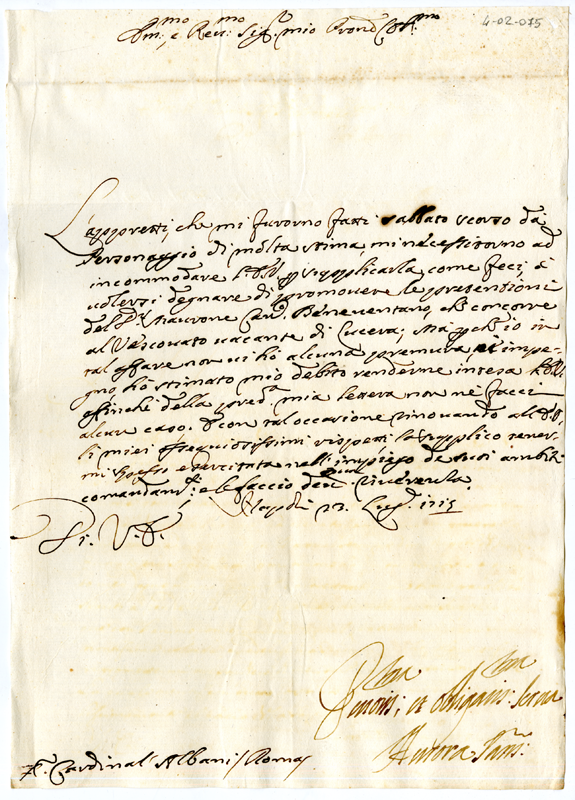 4-02-075
Em:mo e Rev:mo Sig:r mio Pron Col:mo
Gl'apporetti, che mi furorno fatti sabbato scorso da
Personaggio di molta stima, mi necessitorno ad
incommodare V.Em. per supplicarla, come feci, à
volersi degnare di promovere le pretensioni
del Dr. Can:o Beneventano, che concorre
al Vescovato vacante di Lucera; Mà perche io in
tal affare non vi hò alcuna premura, et impe-
gno hò stimato mio debito renderne intesa V.Em.
affinche della pred:a mia lettera non ne facci
alcun caso. E con tal occasione rinovando all' V.Em.
li miei ossequiosissimi rispetti la supplico tener-
mi spesso esercitata nell'impiego de suoi ambiti
comandam:ti, e le faccio riverenza
Napoli 23. Lug:o 1715
Di V.E.
Devotis: et obligatis: Serva
Aurora
S:r Cardinal Albani / Roma